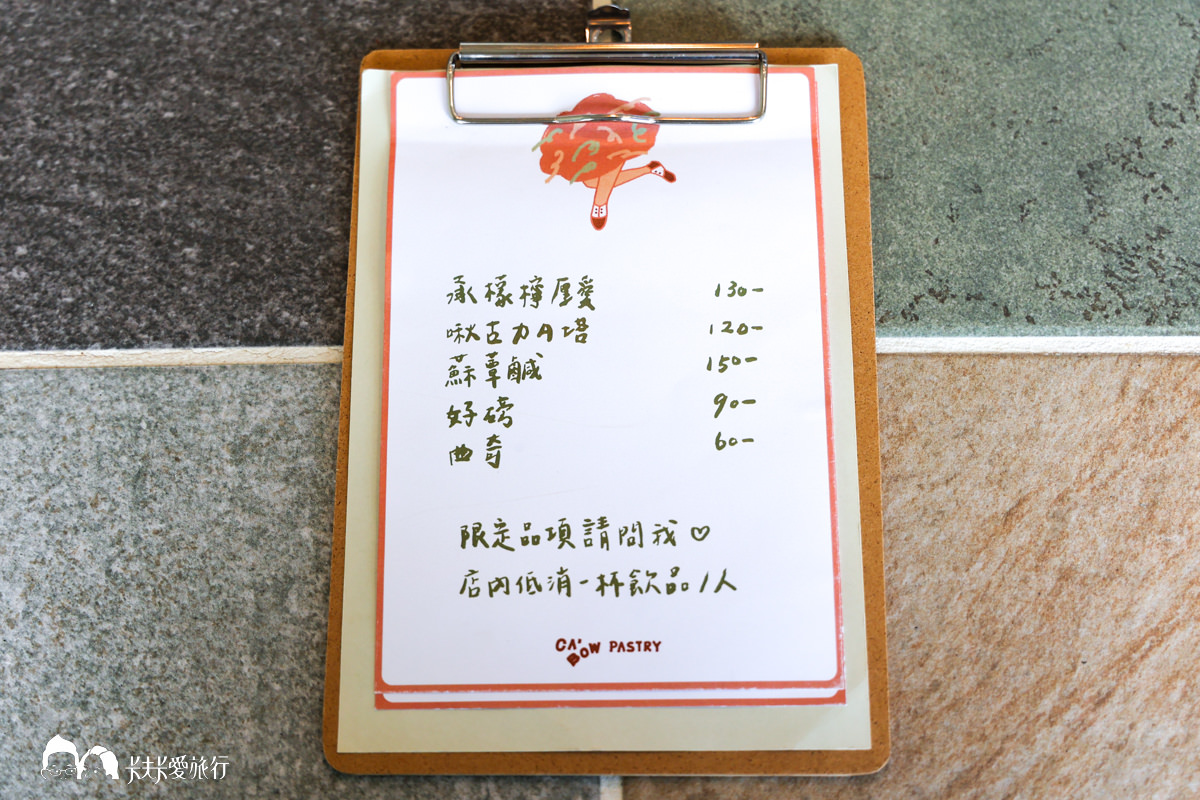 承檬檸厚愛 130-
啾古力A塔 120-
蘇蕈鹹 150-
好磅 90-
曲奇 60-
限定品項請問我♡
店內低消一杯飲品/人
CA'BOW PASTRY
卡夫卡愛旅行